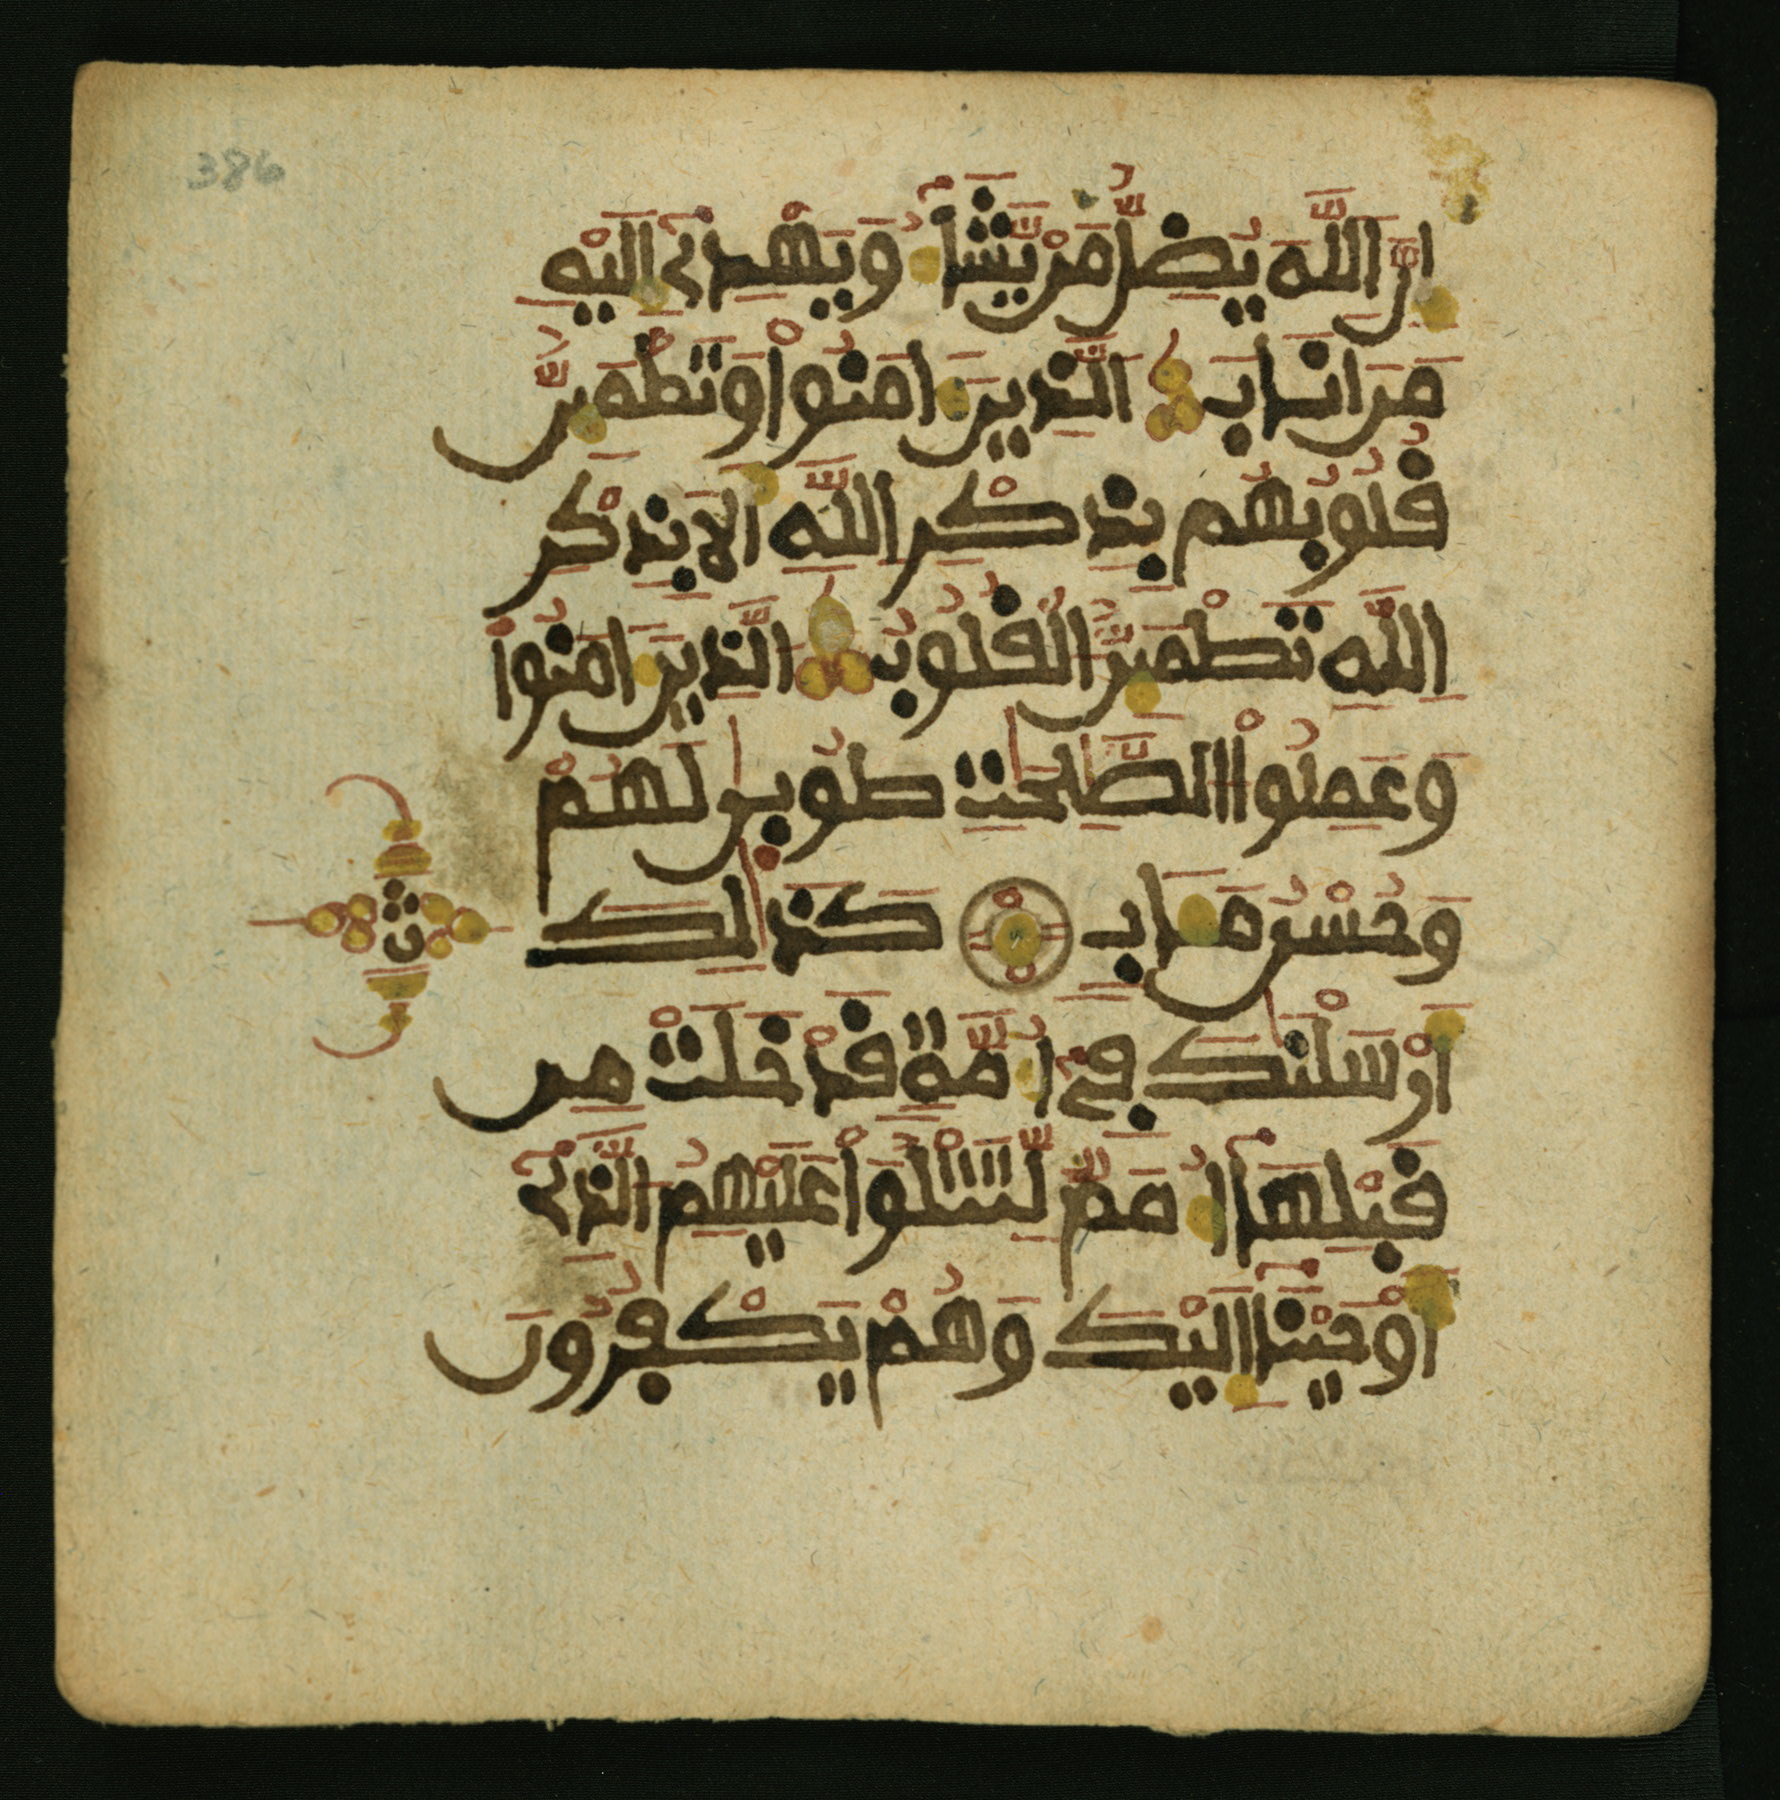 386
اِنَّ اَللَّهَ يُضِلُّ مَنْ يَّشَآءُ وَيَهْدِےٓ إِلَيْهِ
مَنَ اَنَابَ اَ۬لذِينَ ءَامَنُواْ وَتَطْمَئِنُّ
قُلُوبُهُم بِذِكْرِ اِللَّهِ أَلَا بِذِكْرِ
اِللَّهِ تَطْمَئِنُّ اُ۬لْقُلُوبُ اُ۬لذِينَ ءَامَنُواْ
وَعَمِلُواْ اُ۬لصَّٰلِحَٰتِ طُوبيٰ لَهُمْ
وَحُسْنُ مَـَٔابٍ كَذَٰلِكَ
أَرْسَلْنَٰكَ فِےٓ أُمَّةٍ قَدْ خَلَتْ مِن
قَبْلِهَآ أُمَمٌ لِّتَتْلُوَاْ عَلَيْهِمُ اُ۬لذِےٓ
أَوْحَيْنَآ إِلَيْكَ وَهُمْ يَكْفُرُونَ